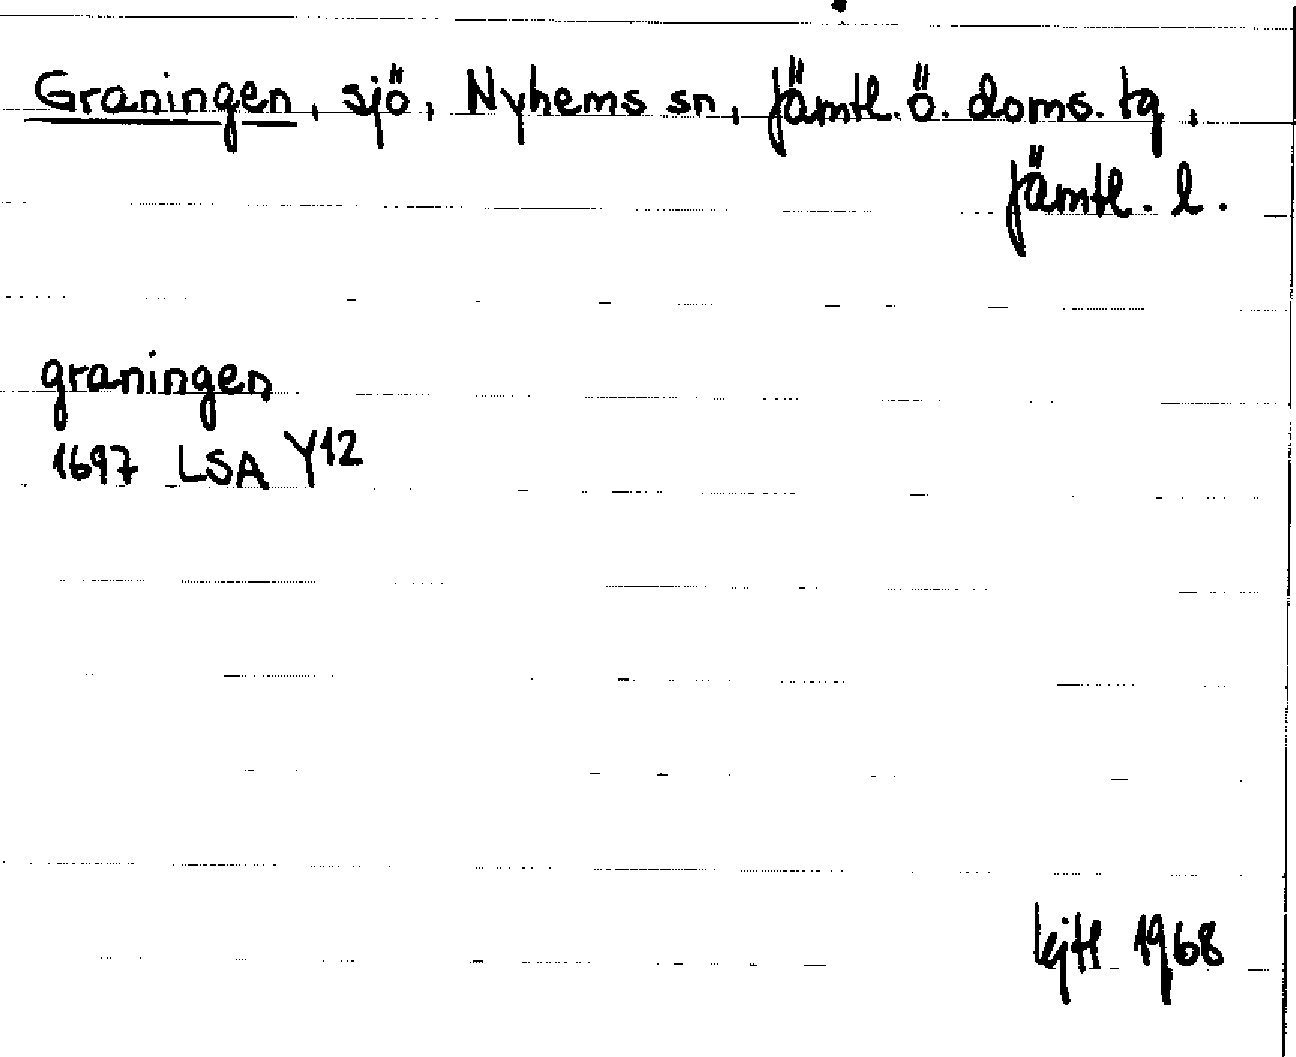 Graningen, sjö, Nyhems sn, Jämtl. ö. doms. tg,
Jämtl. l.
graningen
1697 LSA Y12
1968